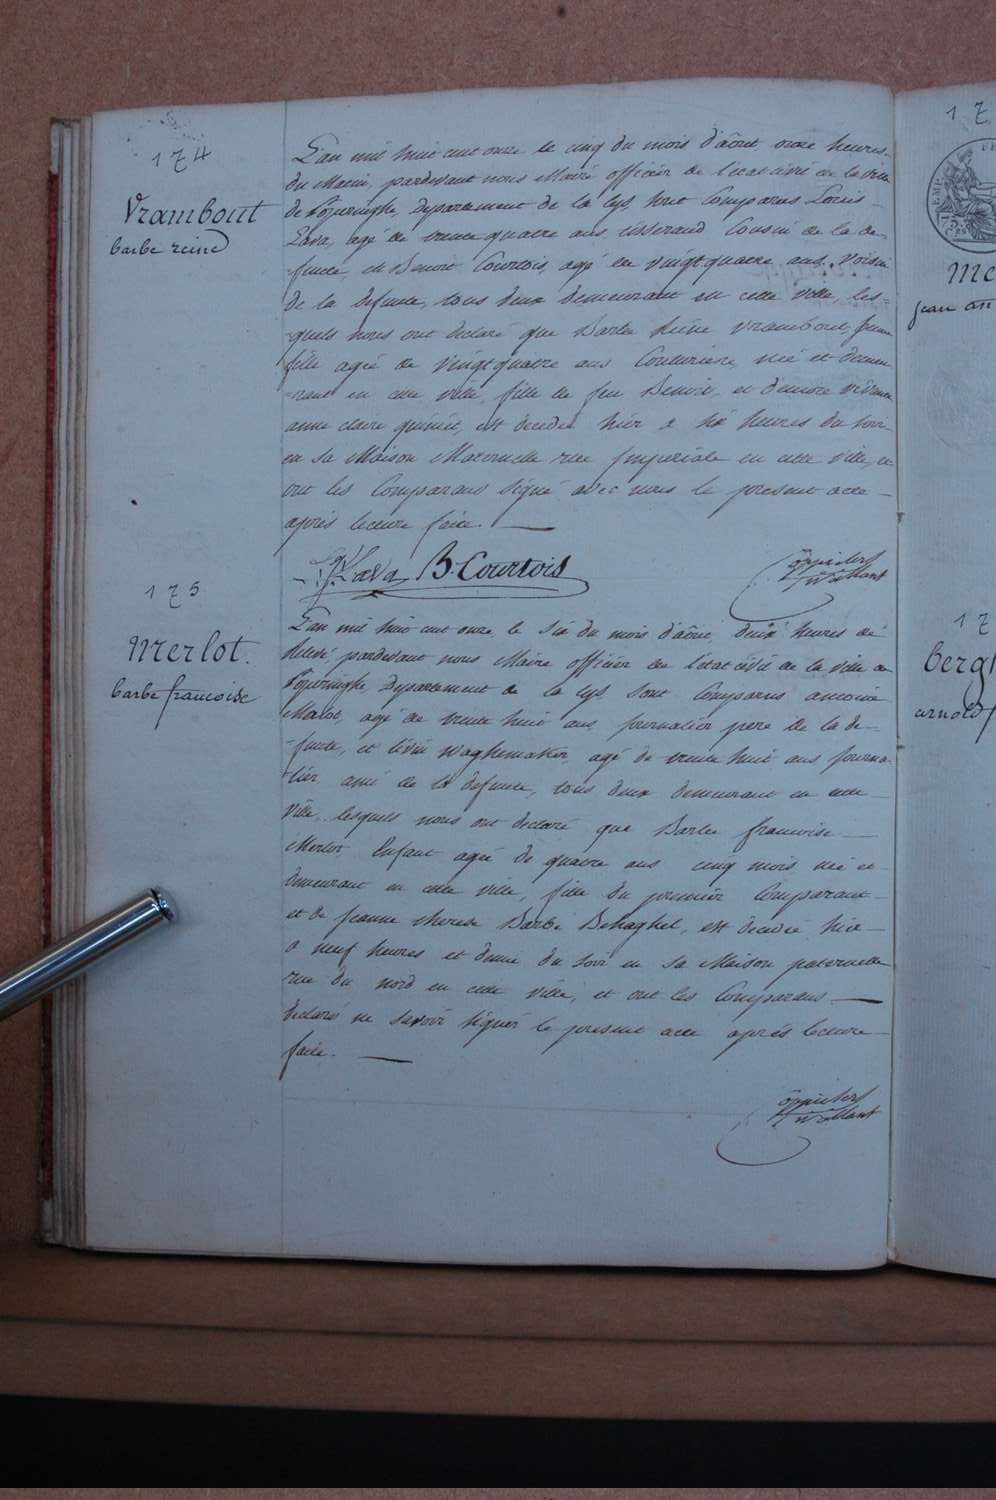 174
Vrambout
barbe reine
L'an mil huit cent onze le cinq du mois d'août onze heures
du Matin, pardevant nous Maire officier de l'etat civil de la ville
de Poperinghe, Departement de la Lys, sont Comparus Louis
Lava, agé de trente quatre ans tisserand Cousin de la de-
-funte, et Benoit Courtois, agé de vingt quatre ans, Voisin
de la defunte, tous deux demeurant en cette ville, les=
-quels nous ont declaré que Barbe Reine Vrambout jeune
fille agée de vingt quatre ans Couturiere, née et demeu
-rant en cette ville, fille de feu Benoit, et d'encore vivante
anne claire, est decedée hier a six heures du soir
en sa Maison Maternelle rue Imperiale en cette ville, et
ont les Comparans signé avec nous le present acte
après lecture faite.
Lava B. Courtois
175
Merlot.
barbe francoise
L'an mil huit cent onze, le six du mois d'août, deux heures de
relevé, pardevant nous Maire officier de l'etat civil de la ville de
Poperinghe, Departement de la Lys sont Comparus antoine
Merlot, agé de trente huit ans, journalier pere de la de-
-funte, et livin waghemaker, agé de trente huit ans journa-
-lier ami de la defunte, tous deux demeurant en cette
ville, lesquels nous ont declaré que Barbe francoise
Merlot, Enfant agée de quatre ans cinq mois née et
demeurant en cette ville, fille du premier Comparant
et de Jeanne therese Barbe Behaghel, est decedée hier
a neuf heures et demie du soir en sa Maison paternelle
rue du nord en cette ville, et ont les Comparans
declaré ne savoir signer le present acte après lecture
faite.
17
Me
jean an
17
berg
arnold